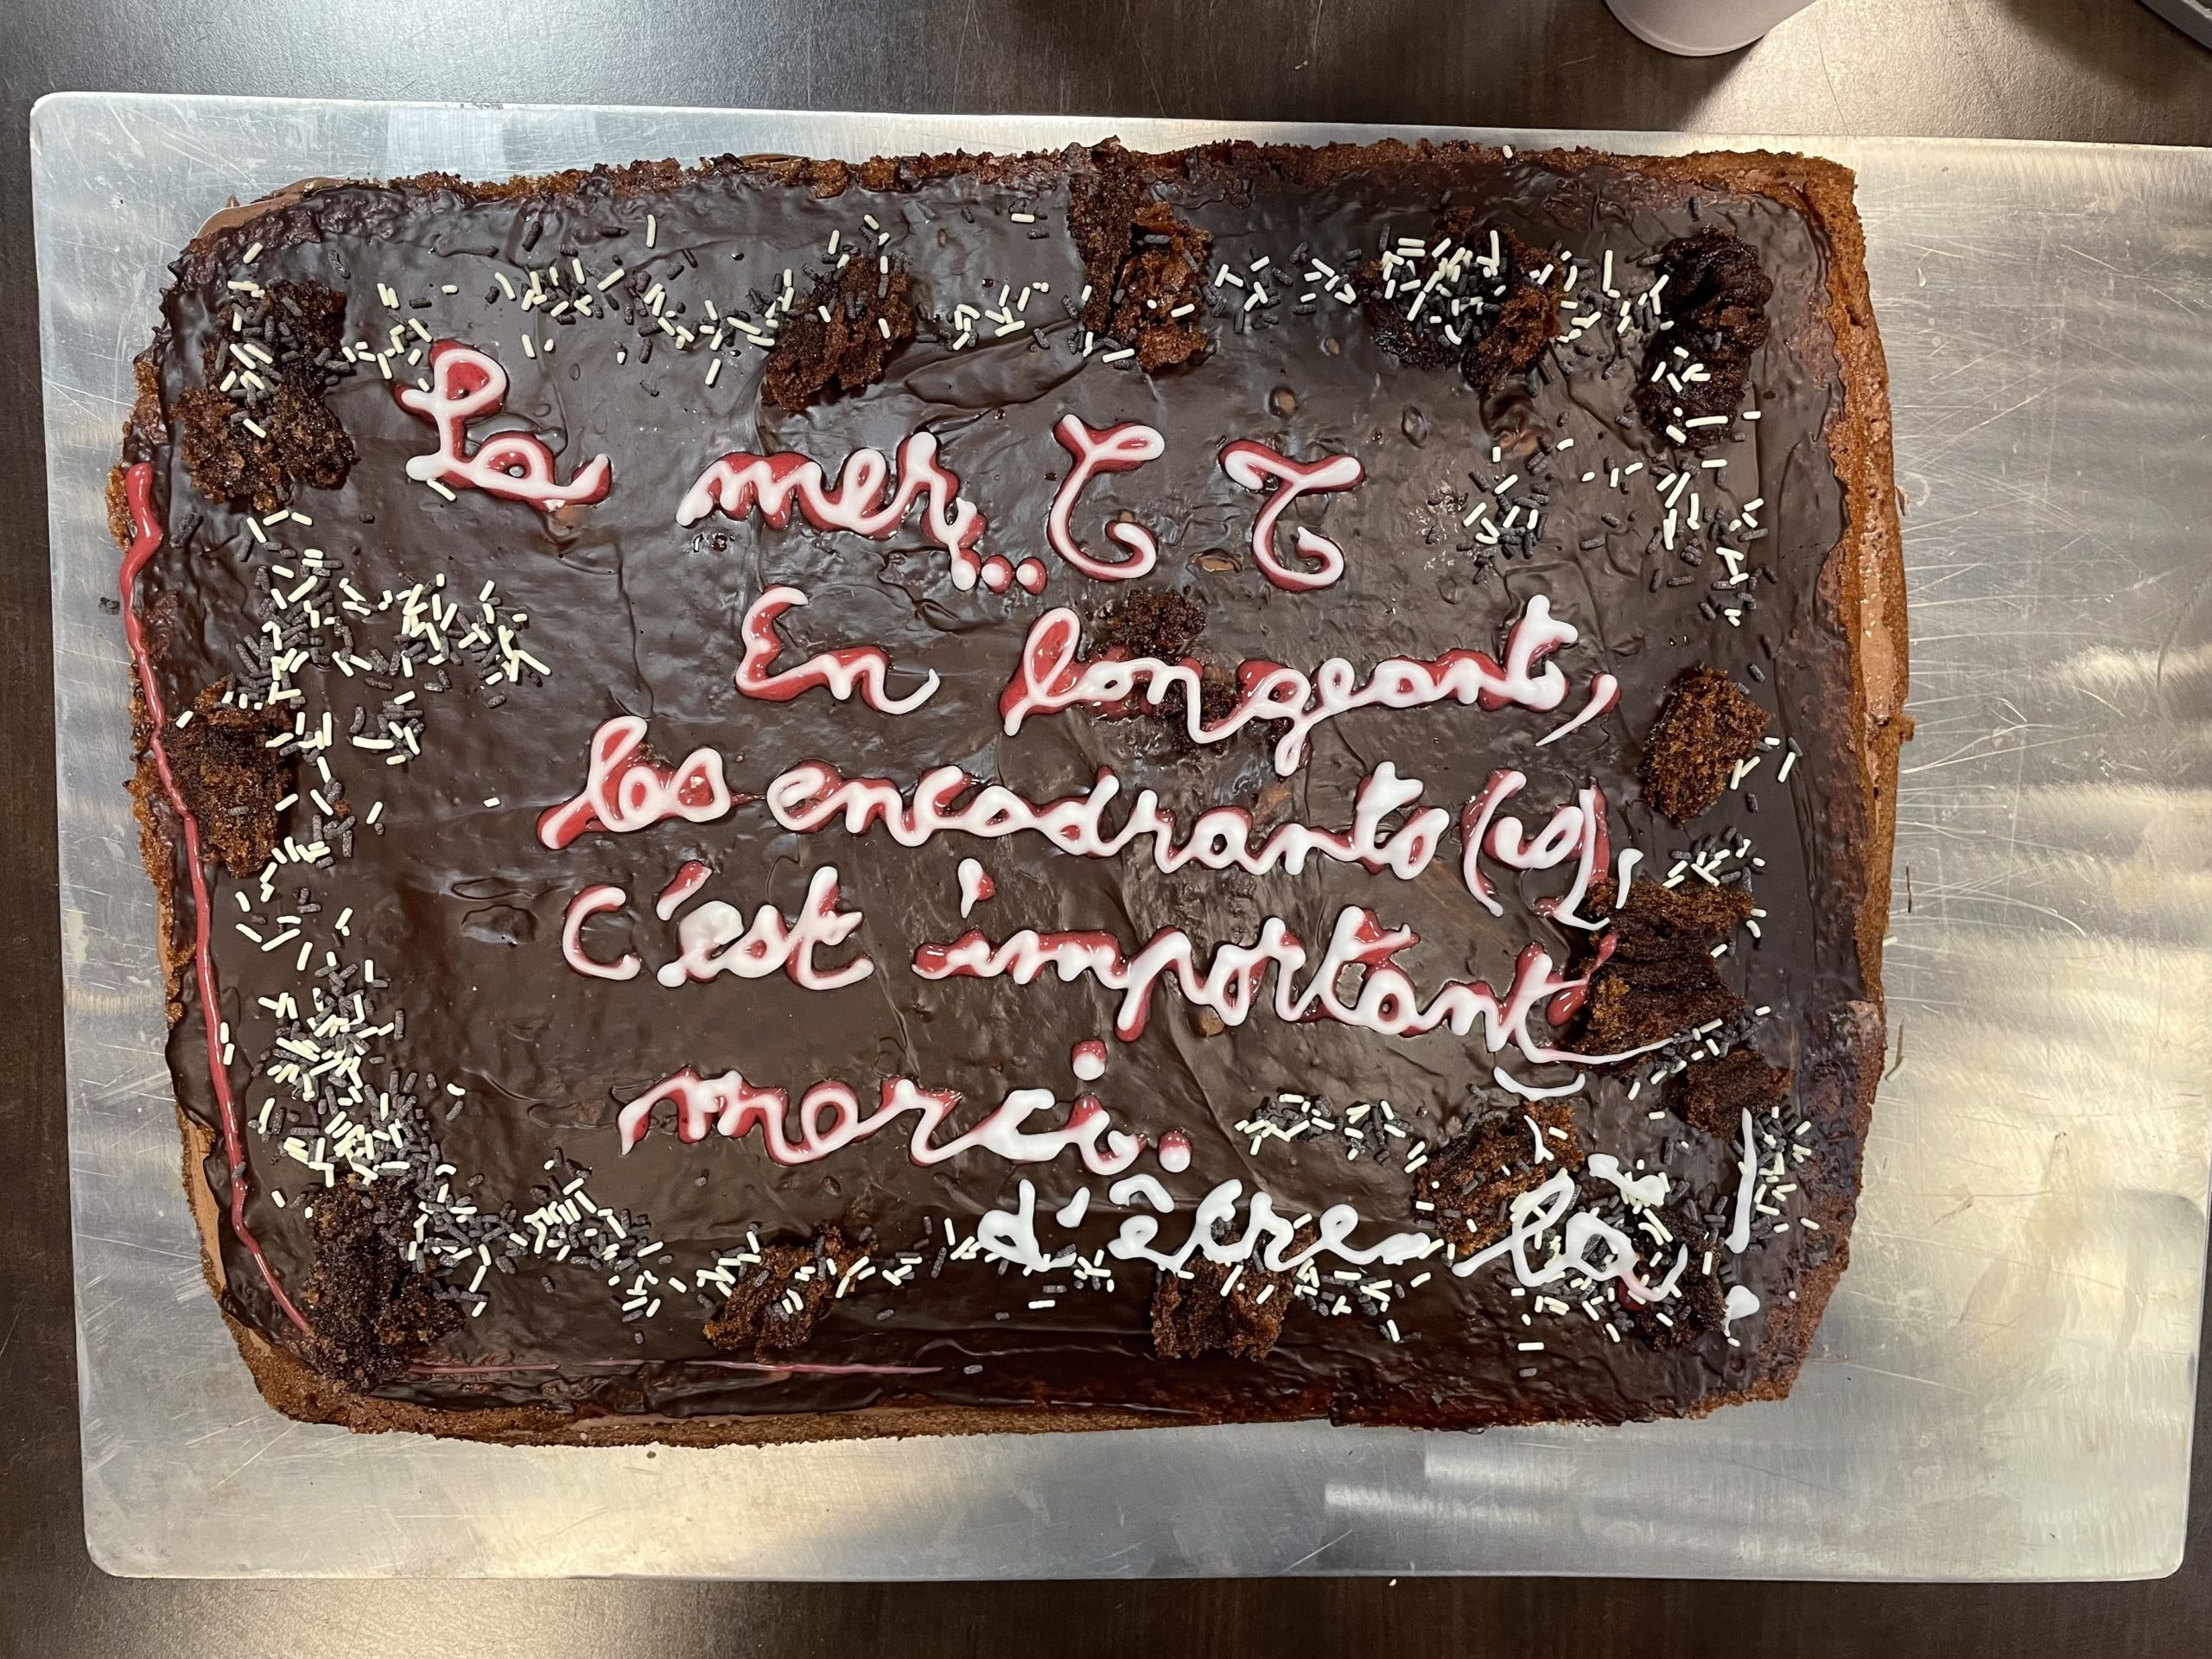 La mer... T T
En longeant,
les encadrants(es),
C'est important
merci.
d'être là !